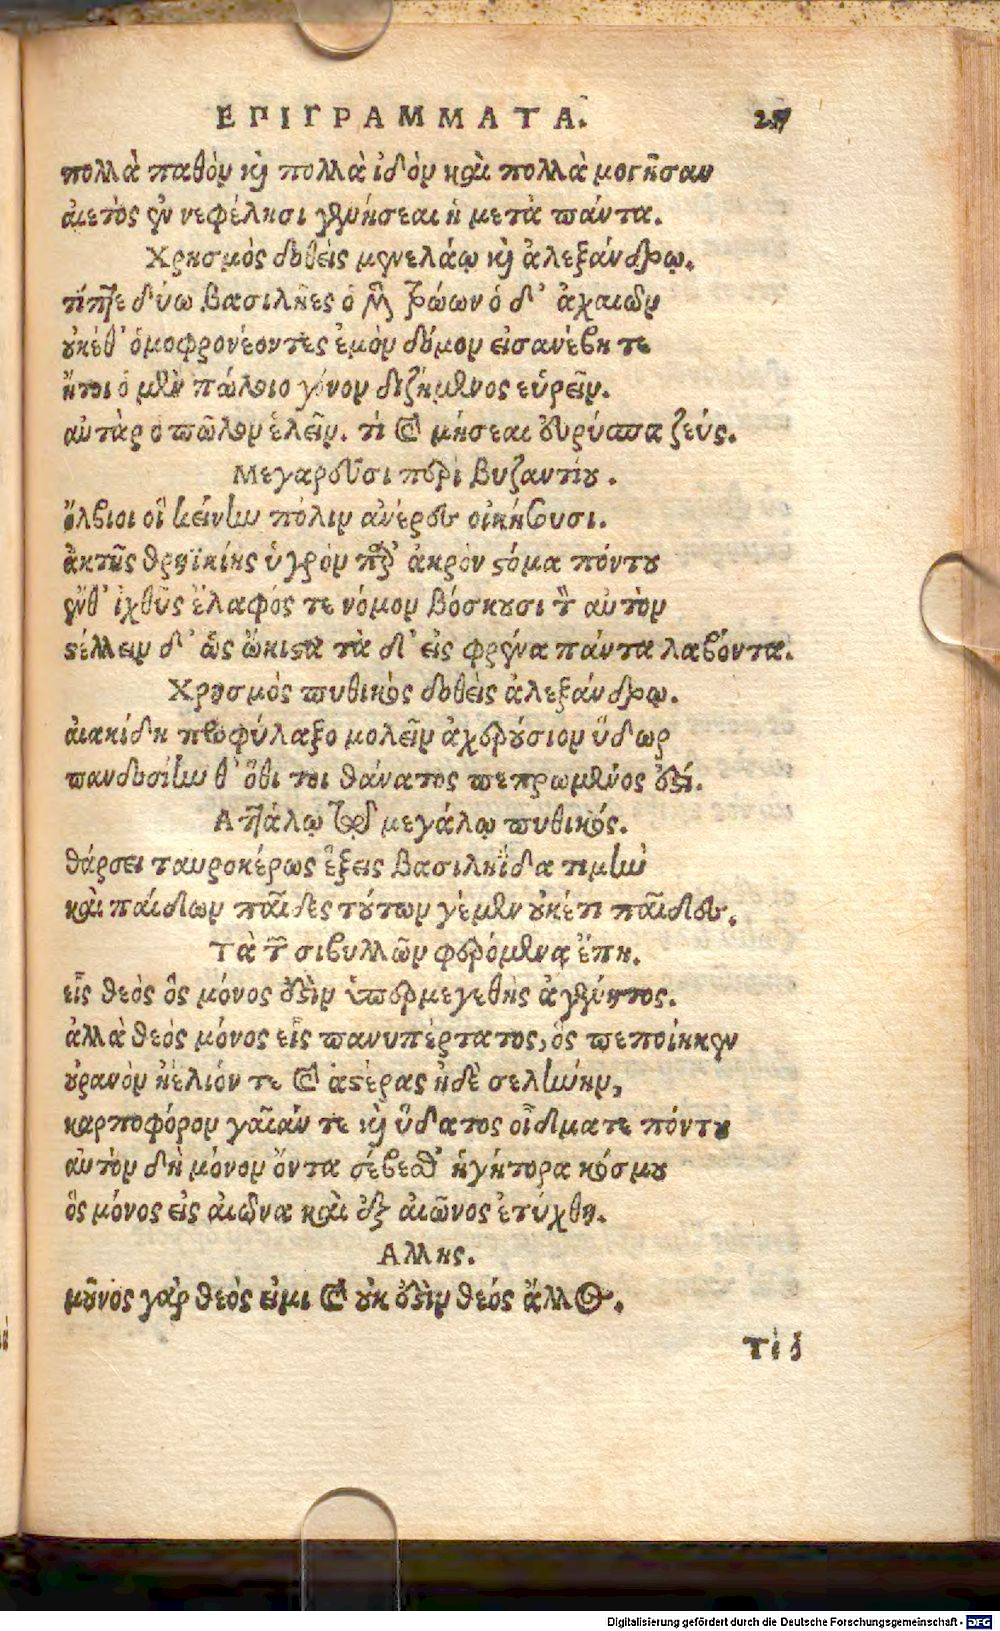 ΕΠΙΓΡΑΜΜΑΤΑ. 27
πολλὰ παθὸν καὶ πολλὰ ἰδὸν καὶ πολλὰ μογῆσαν
ἀιετὸς ἐν νεφέλησι γενήσεαι ἡ μετὰ πάντα.
Χρησμὸς δοθεὶς μενελάῳ καὶ ἀλεξάνδρῳ.
τίπτε δύω βασιλῆες ὁ μὲν τρώων ὁ δ' ἀχαιῶν
οὐκέθ' ὁμοφρονέοντες ἐμὸν δόμον εἰσανέβητε
ἤτοι ὁ μὲν πώλοιο γόνον διζήμενος εὑρεῖν.
αὐτὰρ ὁ πῶλον ἑλεῖν. τί καὶ μήσεαι εὐρύοπα ζεύς.
Μεγαρεῦσι περὶ βυζαντίου.
ὄλβιοι οἳ κείνην πόλιν ἀνέρες οἰκήσουσι.
ἀκτῆς θρηϊκίης ὑγρὸν παρ' ἀκρὸν στόμα πόντου
ἔνθ' ἰχθῦς ἔλαφός τε νόμον βόσκουσι τὸν αὐτὸν
στέλλειν δ' ὣς ὤκιστα τὰ δ' εἰς φρένα πάντα λαβόντα.
Χρησμὸς πυθικὸς δοθεὶς ἀλεξάνδρῳ.
ἀιακίδη προφύλαξο μολεῖν ἀχερούσιον ὕδωρ
πανδοσίην θ' ὅθι τοι θάνατος πεπρωμένος ἐστί.
Ἀττάλῳ τῷ μεγάλῳ πυθικός.
θάρσει ταυροκέρως ἕξεις βασιληΐδα τιμὴν
καὶ παίδων παῖδες τούτων γε μὲν οὐκέτι παῖδες.
Τὰ τῶν σιβυλλῶν φερόμενα ἔπη.
εἷς θεὸς ὃς μόνος ἐστὶν ὑπερμεγεθὴς ἀγένητος.
ἀλλὰ θεὸς μόνος εἷς πανυπέρτατος, ὃς πεποίηκεν
οὐρανὸν ἠέλιόν τε καὶ ἀστέρας ἠδὲ σελήνην,
καρποφόρον γαῖάν τε καὶ ὕδατος οἴδματε πόντου
αὐτὸν δὴ μόνον ὄντα σέβεσθ' ἡγήτορα κόσμου
ὃς μόνος εἰς ἀιῶνα καὶ ἐξ ἀιῶνος ἐτύχθη.
Ἄλλης.
μοῦνος γὰρ θεὸς εἰμι καὶ οὐκ ἐστὶν θεός ἄλλος.
Digitalisierung gefördert durch die Deutsche Forschungsgemeinschaft - DFG